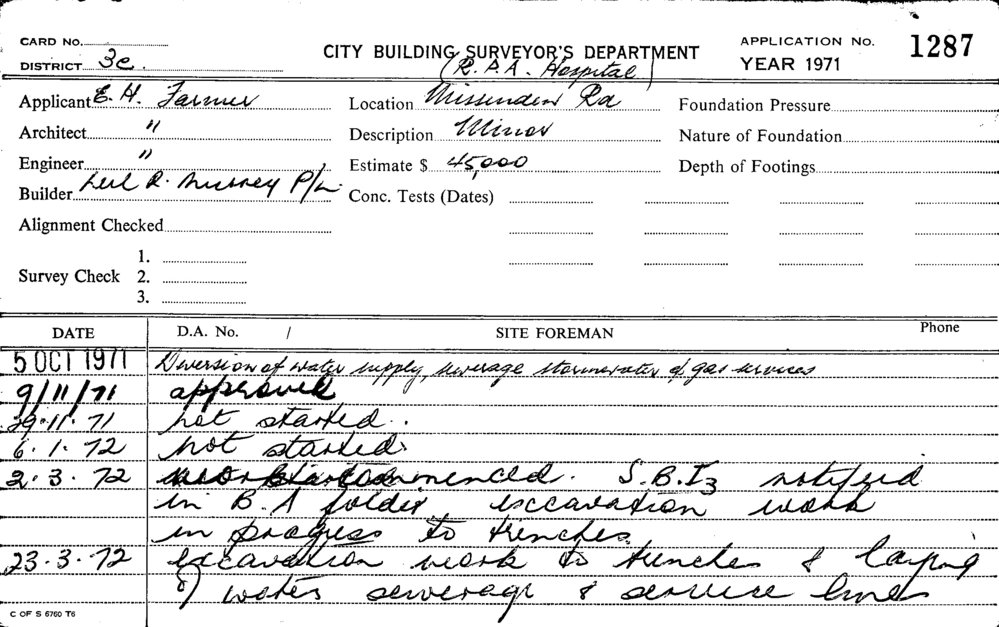 CARD No.
DISTRICT 3c.
CITY BUILDING SURVEYOR'S DEPARTMENT
(R.P.A. Hospital)
APPLICATION No. 1287
YEAR 1971
Applicant E. H. Farmer
Location Missenden Rd
Foundation Pressure
Architect "
Description Minor
Nature of Foundation
Engineer "
Estimate $ 45,000
Depth of Footings
Builder R. P/L
Conc. Tests (Dates)
Alignment Checked
Survey Check
1.
2.
3.
DATE D.A. No. / SITE FOREMAN Phone
5 OCT 1971 Diversion of water supply, sewerage stormwater & gas services
9/11/71 approved
29.11.71 not started.
6.1.72 not started.
2.3.72 work commenced. S.B.I3 notified
in B.A folder excavation work
in progress to trenches
23.3.72 excavation work to trenches & laying
of water sewerage & service lines
C OF S 6760 T6